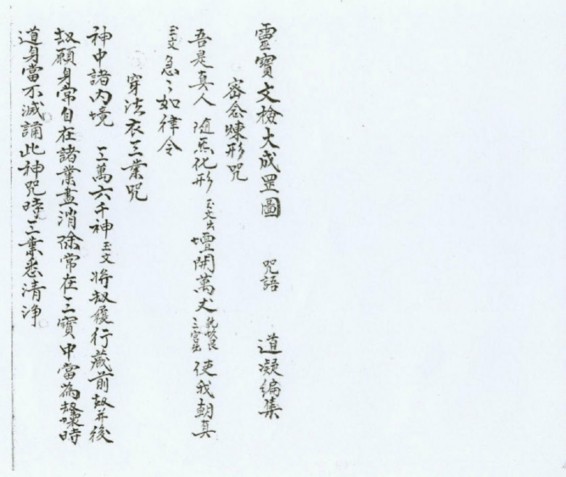 靈寶文檢大成罡圖 咒語 道凝編集
密念煉形咒
吾是真人 隨炁化形 玉文出 壇開萬丈 乾坎艮三宮出 使我朝真
玉文 急々如律令
穿法衣三業咒
神中諸内境 三萬六千神 玉文 將劫復行藏前劫并後
劫願身常自在諸業盡消除常在三寳中當為劫壞時
道身當不滅誦此神咒時三業悉清浄